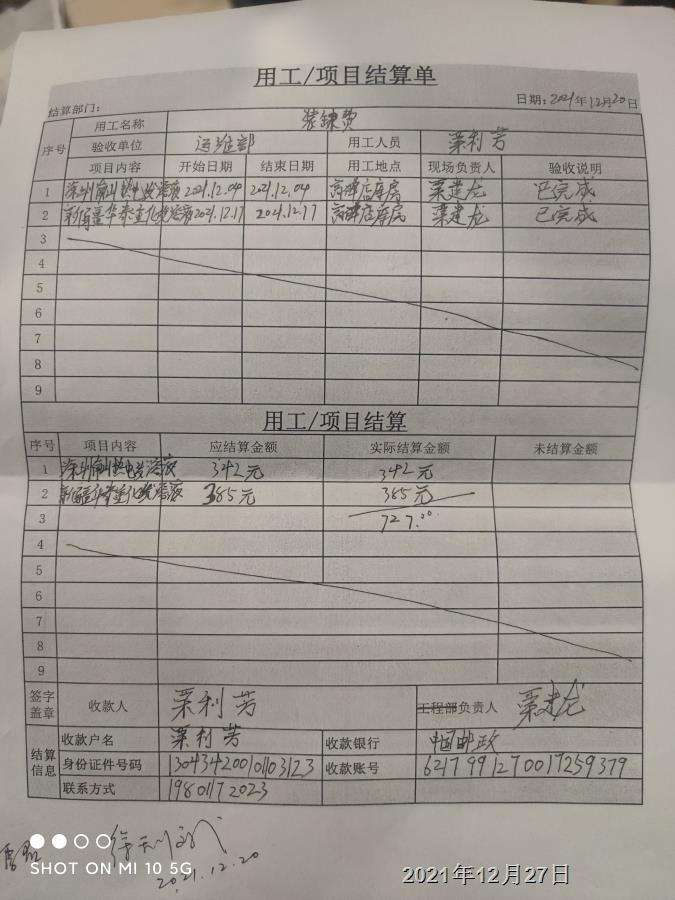 用工/项目结算单
结算部门： 日期：2021年12月20日
序号 用工名称 装镙费
验收单位 运维部 用工人员 栗利芳
项目内容 开始日期 结束日期 用工地点 现场负责人 验收说明
1 深圳南山热电发溶液 2021.12.04 2021.12.04 库房 栗建龙 已完成
2 溶液 2021.12.17 2021.12.17 库房 栗建龙 已完成
3
4
5
6
7
8
9
用工/项目结算
序号 项目内容 应结算金额 实际结算金额 未结算金额
1 深圳南山热电发溶液 342元 342元
2 溶液 385元 385元
3 727.00
4
5
6
7
8
9
签字盖章 收款人 栗利芳 工程部负责人 栗建龙
结算信息 收款户名 栗利芳 收款银行 中国邮政
身份证件号码 130434200101103123 收款账号 6217991270017259379
联系方式 19801172023
2021.12.20
SHOT ON MI 10 5G
2021年12月27日